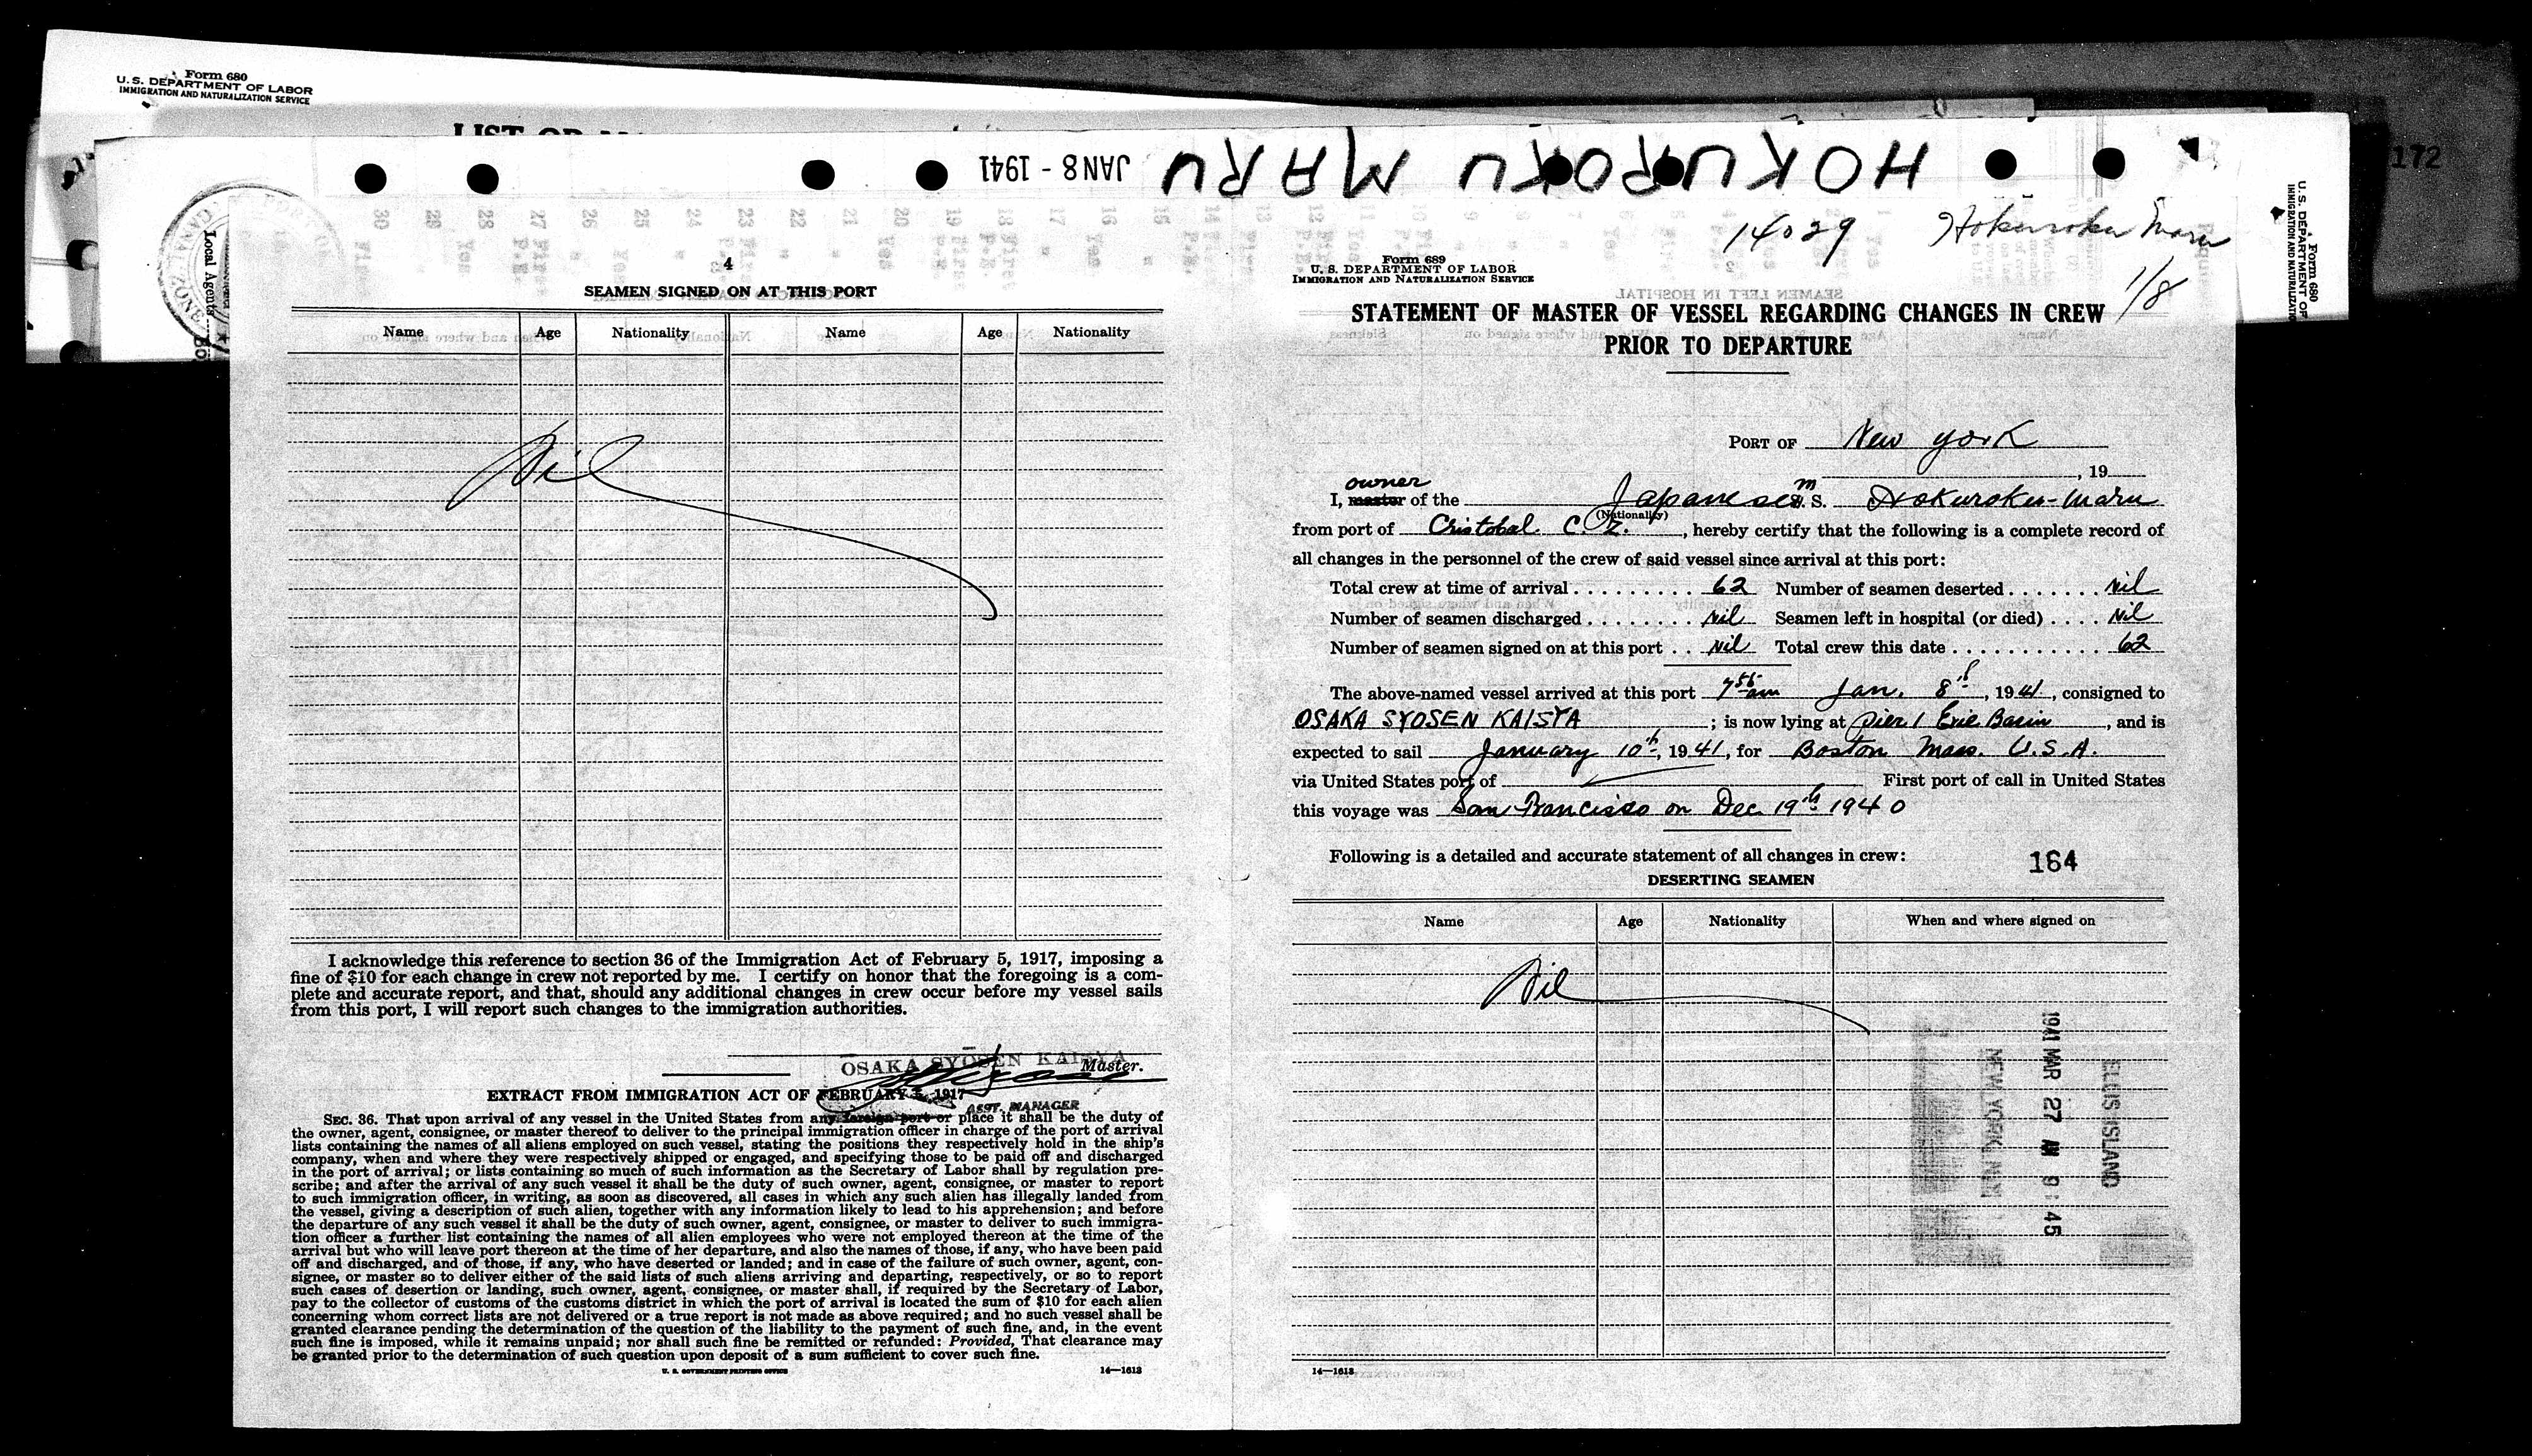 Form 680
U. S. DEPARTMENT OF LABOR
IMMIGRATION AND NATURALIZATION SERVICE
HOKUROKU MARU
JAN 8 - 1941
172
Local Agents
Form 680
U. S. DEPARTMENT OF
4
SEAMEN SIGNED ON AT THIS PORT
Name Age Nationality Name Age Nationality
Nil
I acknowledge this reference to section 36 of the Immigration Act of February 5, 1917, imposing a
fine of $10 for each change in crew not reported by me. I certify on honor that the foregoing is a com-
plete and accurate report, and that, should any additional changes in crew occur before my vessel sails
from this port, I will report such changes to the immigration authorities.
OSAKA SYOSEN KAISYA
Master.
EXTRACT FROM IMMIGRATION ACT OF FEBRUARY 5, 1917
ASST. MANAGER
SEC. 36. That upon arrival of any vessel in the United States from any foreign port or place it shall be the duty of
the owner, agent, consignee, or master thereof to deliver to the principal immigration officer in charge of the port of arrival
lists containing the names of all aliens employed on such vessel, stating the positions they respectively hold in the ship's
company, when and where they were respectively shipped or engaged, and specifying those to be paid off and discharged
in the port of arrival; or lists containing so much of such information as the Secretary of Labor shall by regulation pre-
scribe; and after the arrival of any such vessel it shall be the duty of such owner, agent, consignee, or master to report
to such immigration officer, in writing, as soon as discovered, all cases in which any such alien has illegally landed from
the vessel, giving a description of such alien, together with any information likely to lead to his apprehension; and before
the departure of any such vessel it shall be the duty of such owner, agent, consignee, or master to deliver to such immigra-
tion officer a further list containing the names of all alien employees who were not employed thereon at the time of the
arrival but who will leave port thereon at the time of her departure, and also the names of those, if any, who have been paid
off and discharged, and of those, if any, who have deserted or landed; and in case of the failure of such owner, agent, con-
signee, or master so to deliver either of the said lists of such aliens arriving and departing, respectively, or so to report
such cases of desertion or landing, such owner, agent, consignee, or master shall, if required by the Secretary of Labor,
pay to the collector of customs of the customs district in which the port of arrival is located the sum of $10 for each alien
concerning whom correct lists are not delivered or a true report is not made as above required; and no such vessel shall be
granted clearance pending the determination of the question of the liability to the payment of such fine, and, in the event
such fine is imposed, while it remains unpaid; nor shall such fine be remitted or refunded: Provided, That clearance may
be granted prior to the determination of such question upon deposit of a sum sufficient to cover such fine.
U. S. GOVERNMENT PRINTING OFFICE 14—1613
14029 Hokuroku Maru
1/8
Form 689
U. S. DEPARTMENT OF LABOR
IMMIGRATION AND NATURALIZATION SERVICE
STATEMENT OF MASTER OF VESSEL REGARDING CHANGES IN CREW
PRIOR TO DEPARTURE
PORT OF New York
, 19
owner
I, master of the Japanese M. S. Hokuroku-Maru
(Nationality)
from port of Cristobal C. Z., hereby certify that the following is a complete record of
all changes in the personnel of the crew of said vessel since arrival at this port:
Total crew at time of arrival 62 Number of seamen deserted Nil
Number of seamen discharged Nil Seamen left in hospital (or died) Nil
Number of seamen signed on at this port Nil Total crew this date 62
The above-named vessel arrived at this port 7 55 am Jan. 8th, 1941, consigned to
OSAKA SYOSEN KAISYA; is now lying at Pier 1 Erie Basin, and is
expected to sail January 10th, 1941, for Boston Mass. U.S.A.
via United States port of First port of call in United States
this voyage was San Francisco on Dec 19th 1940
Following is a detailed and accurate statement of all changes in crew:
164
DESERTING SEAMEN
Name Age Nationality When and where signed on
Nil
ELLIS ISLAND
1941 MAR 27 AM 9:45
NEW YORK
14—1613